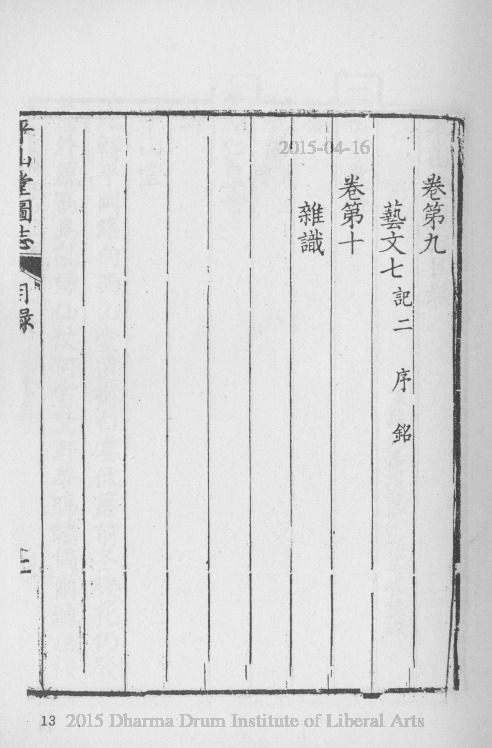 卷第九
藝文七 記二 序 銘
卷第十
雜識
平山堂圖志 目錄
2015-04-16
13 2015 Dharma Drum Institute of Liberal Arts